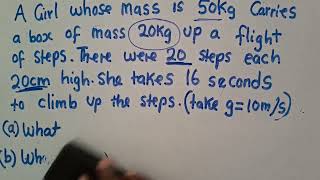 A Girl whose mass is 50Kg Carries
a box of mass 20Kg up a flight
of steps. There were 20 steps each
20cm high. She takes 16 seconds
to climb up the steps. (take g=10m/s)
(a) What
(b)